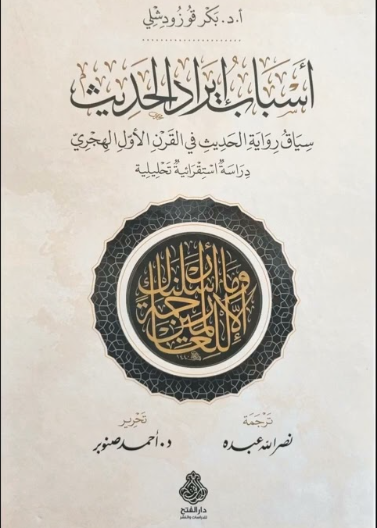 أ.د. بكر قوزودشلي
أسباب إيراد الحديث
سياق رواية الحديث في القرن الأول الهجري
دراسة استقرائية تحليلية
وما أرسلناك
إلا رحمة
للعالمين
ترجمة
نصر الله عبده
تحرير
د. أحمد صنوبر
دار الفتح
للدراسات والنشر